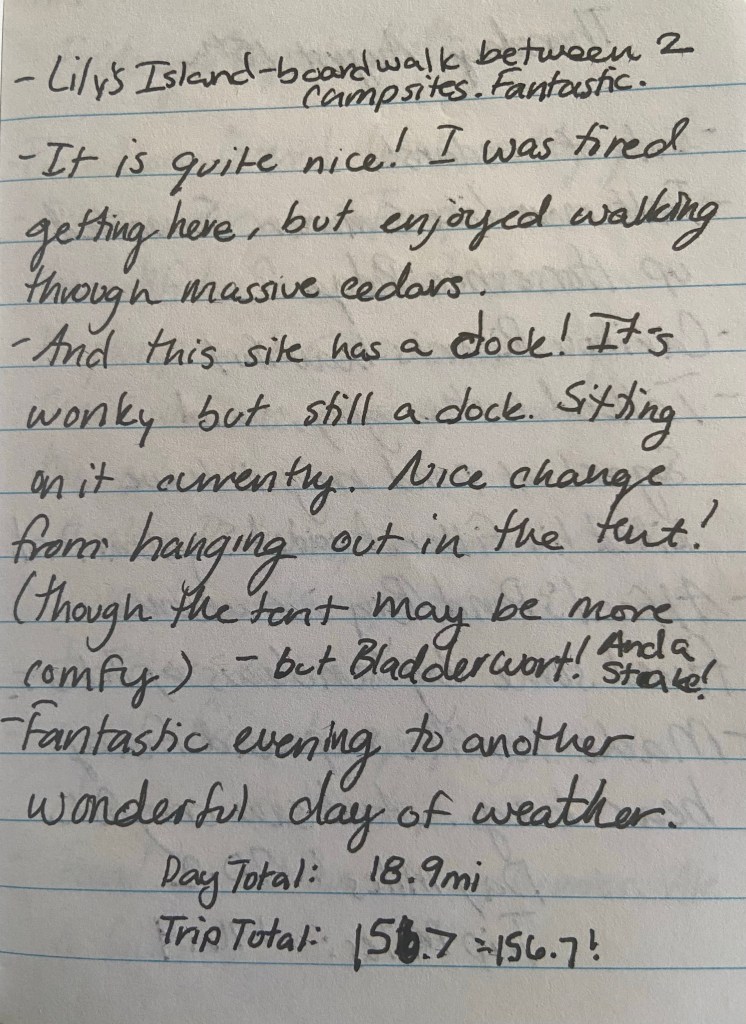 - Lily's Island-boardwalk between 2
campsites. Fantastic.
- It is quite nice! I was tired
getting here, but enjoyed walking
through massive cedars.
- And this site has a dock! It's
wonky but still a dock. Sitting
on it currently. Nice change
from hanging out in the tent!
(though the tent may be more
comfy) - but Bladderwort! And a
Snake!
- Fantastic evening to another
wonderful day of weather.
Day Total: 18.9mi
Trip Total: 156.7 =156.7!